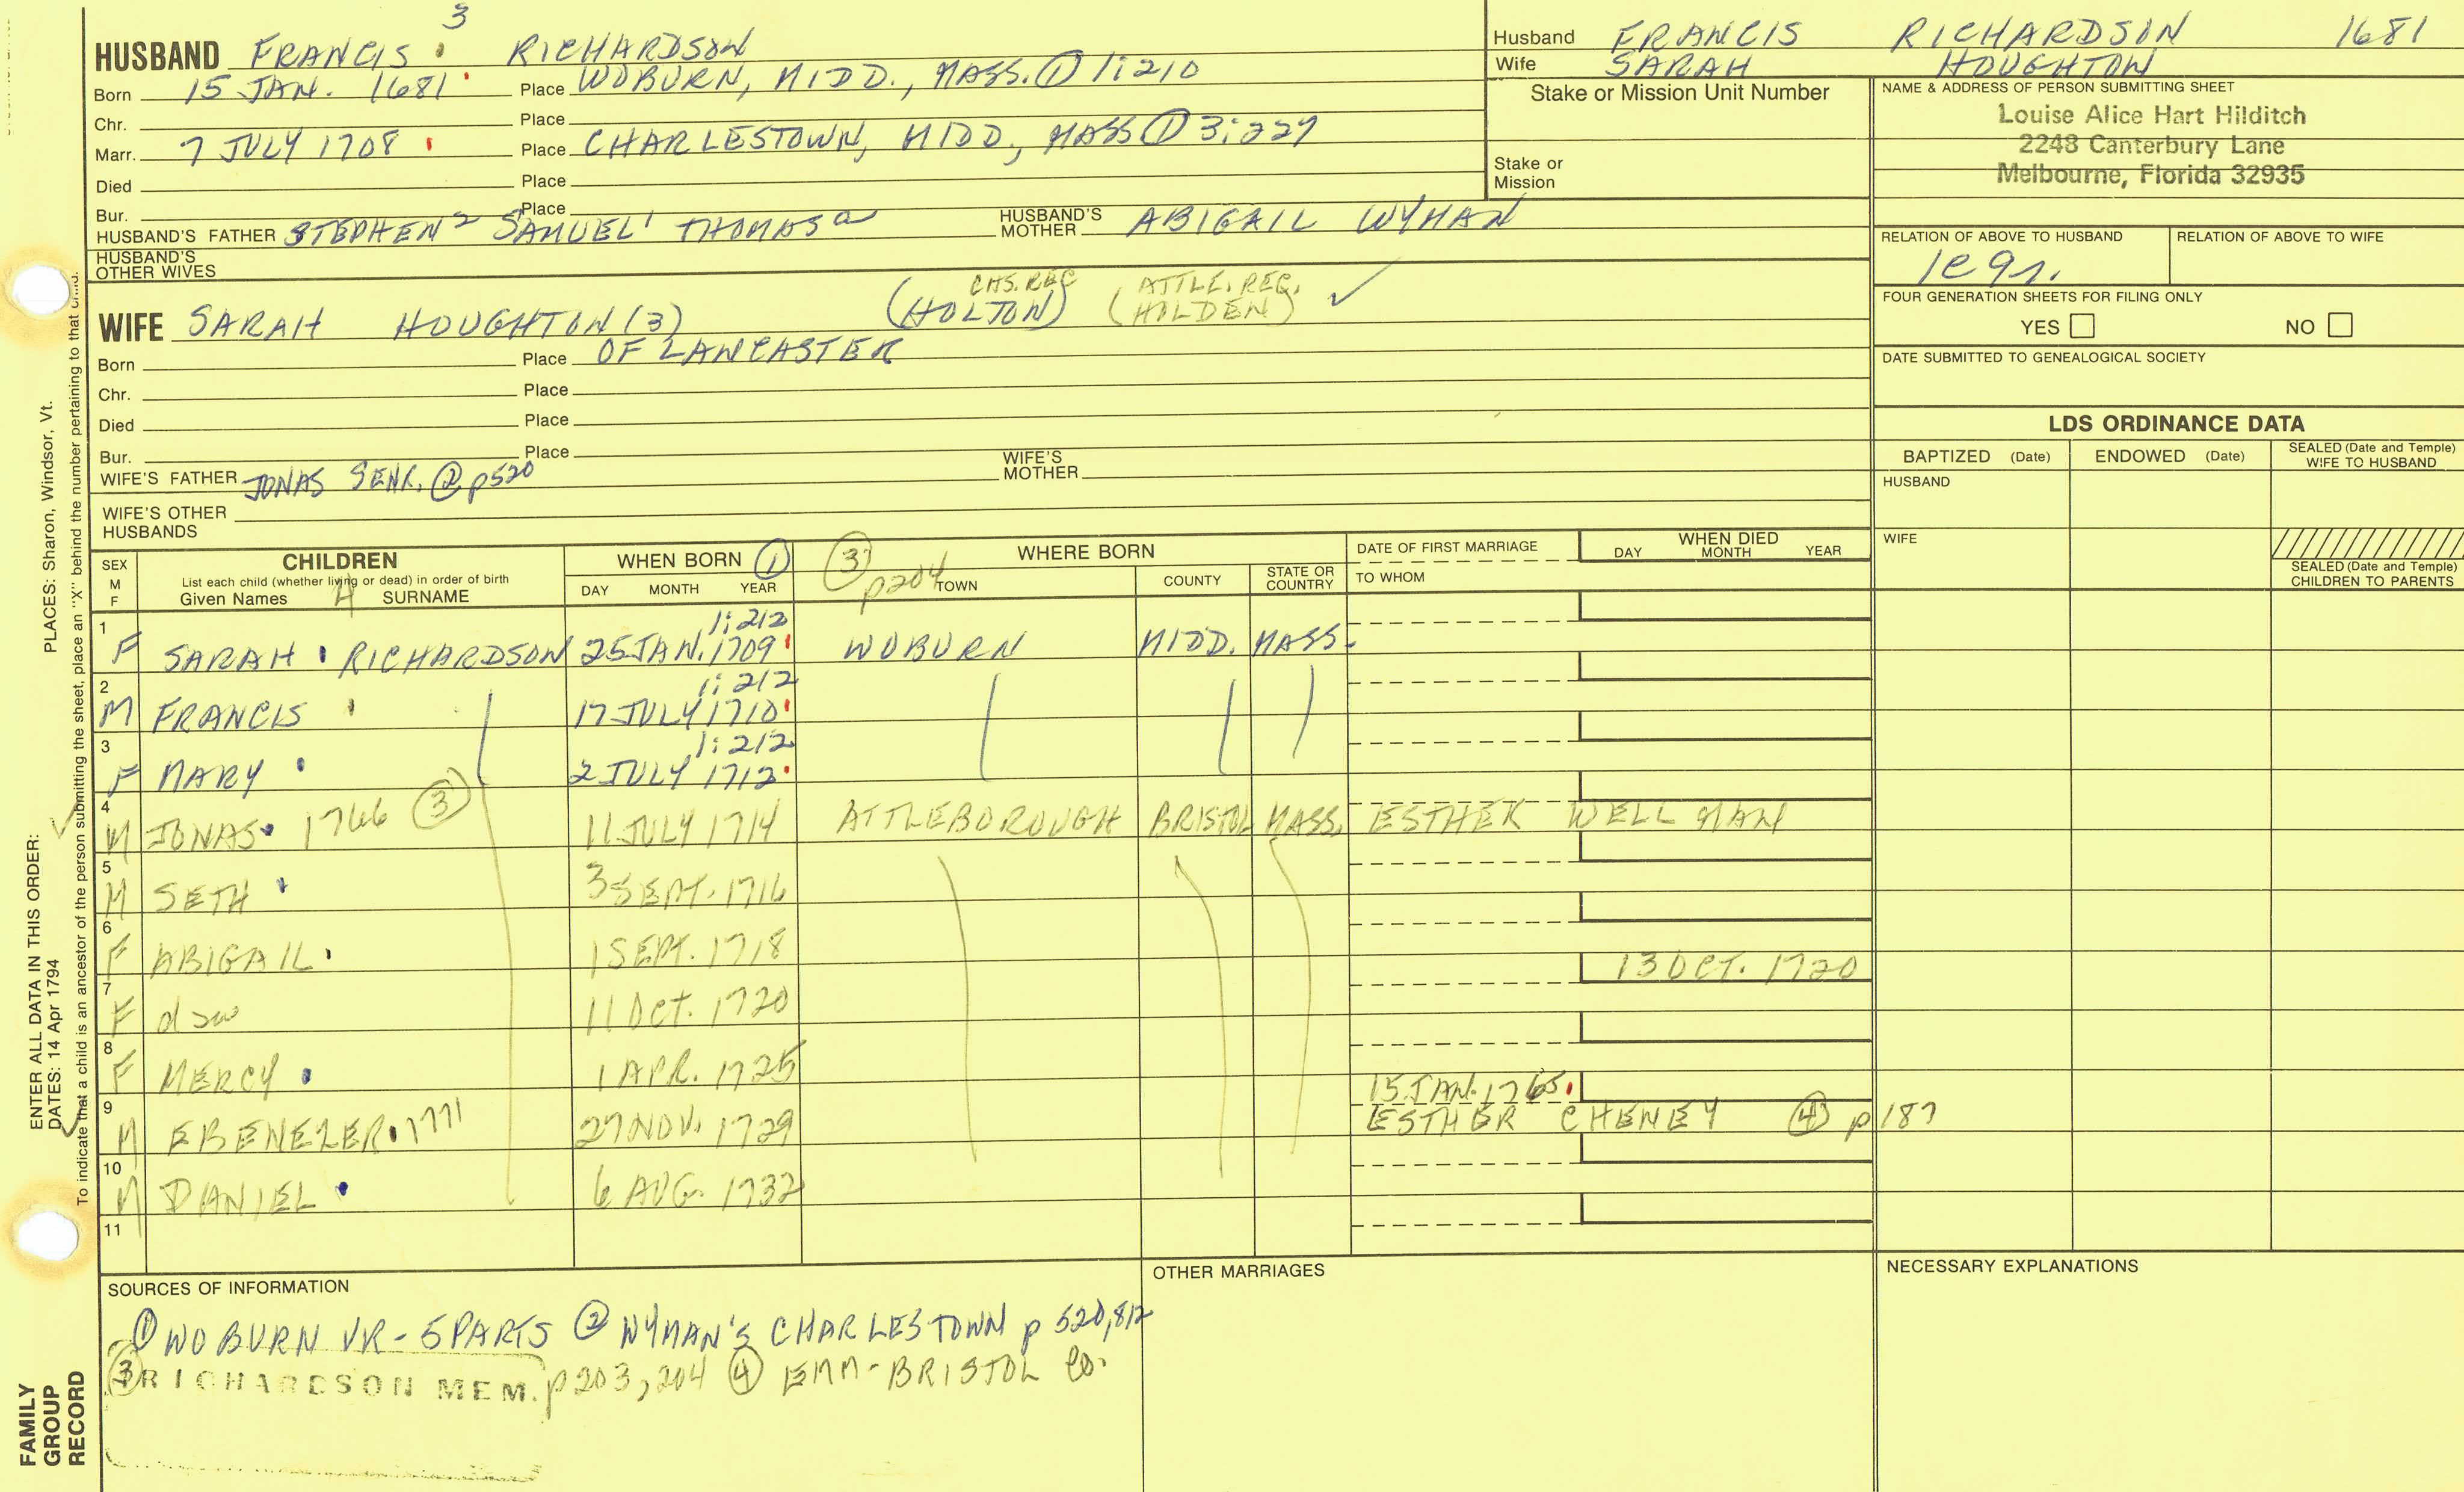 3
HUSBAND FRANCIS RICHARDSON
Born 15 JAN. 1681 Place WOBURN, MIDD., MASS. ① 1:210
Chr. Place
Marr. 7 JULY 1708 Place CHARLESTOWN, MIDD., MASS ① 3:227
Died Place
Bur. Place
HUSBAND'S FATHER STEPHEN 2 SAMUEL 1 THOMAS a HUSBAND'S MOTHER ABIGAIL WYMAN
HUSBAND'S OTHER WIVES
CHS. REC ATTLE. REC.
WIFE SARAH HOUGHTON (3) (HOLTON) (HOLDEN) ✓
Born Place OF LANCASTER
Chr. Place
Died Place
Bur. Place
WIFE'S FATHER JONAS SENR. ② p520 WIFE'S MOTHER
WIFE'S OTHER HUSBANDS
Husband FRANCIS RICHARDSON 1681
Wife SARAH HOUGHTON
Stake or Mission Unit Number
Stake or Mission
NAME & ADDRESS OF PERSON SUBMITTING SHEET
Louise Alice Hart Hilditch
2248 Canterbury Lane
Melbourne, Florida 32935
RELATION OF ABOVE TO HUSBAND RELATION OF ABOVE TO WIFE
FOUR GENERATION SHEETS FOR FILING ONLY
YES NO
DATE SUBMITTED TO GENEALOGICAL SOCIETY
LDS ORDINANCE DATA
BAPTIZED (Date) ENDOWED (Date) SEALED (Date and Temple) WIFE TO HUSBAND
HUSBAND
WIFE
SEALED (Date and Temple) CHILDREN TO PARENTS
SEX M F
CHILDREN
List each child (whether living or dead) in order of birth
Given Names 4 SURNAME
WHEN BORN ①
DAY MONTH YEAR
③ p204 WHERE BORN
TOWN COUNTY STATE OR COUNTRY
DATE OF FIRST MARRIAGE
TO WHOM
WHEN DIED
DAY MONTH YEAR
1:212
1 F SARAH RICHARDSON 25 JAN. 1709 WOBURN MIDD. MASS.
1:212
2 M FRANCIS 17 JULY 1710
1:212
3 F MARY 2 JULY 1712
4 M JONAS 1766 ③ 11 JULY 1714 ATTLEBOROUGH BRISTOL MASS. ESTHER WELLMAN
5 M SETH 3 SEPT. 1716
6 F ABIGAIL 1 SEPT. 1718
13 OCT. 1720
7 F dsw 11 OCT. 1720
8 F MERCY 1 APR. 1725
15 JAN. 1765
9 M EBENEZER 1771 27 NOV. 1729 ESTHER CHENEY ④ p187
10 M DANIEL 6 AUG. 1732
11
SOURCES OF INFORMATION
① WOBURN VR - 5 PARTS ② WYMAN'S CHARLESTOWN p 520, 812
③ RICHARDSON MEM. p203, 204 ④ EMM - BRISTOL Co.
OTHER MARRIAGES
NECESSARY EXPLANATIONS
FAMILY GROUP RECORD
ENTER ALL DATA IN THIS ORDER:
DATES: 14 Apr 1794
PLACES: Sharon, Windsor, Vt.
To indicate that a child is an ancestor of the person submitting the sheet, place an "X" behind the number pertaining to that child.